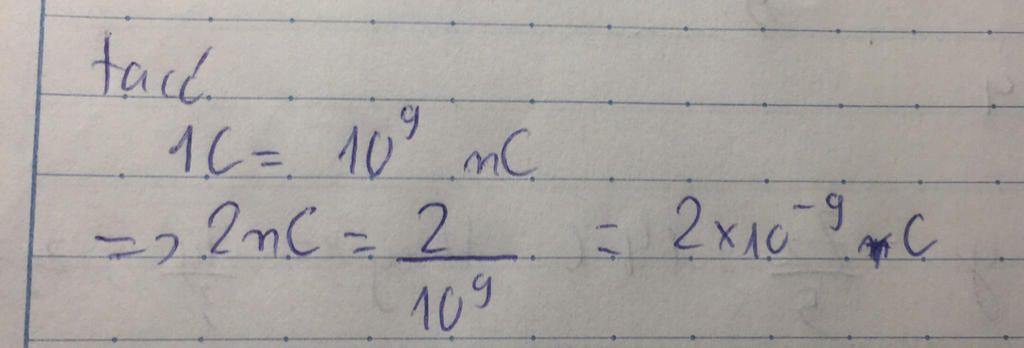 ta có
1C = 10⁹ nC
=> 2nC = 2/10⁹ = 2×10⁻⁹ C